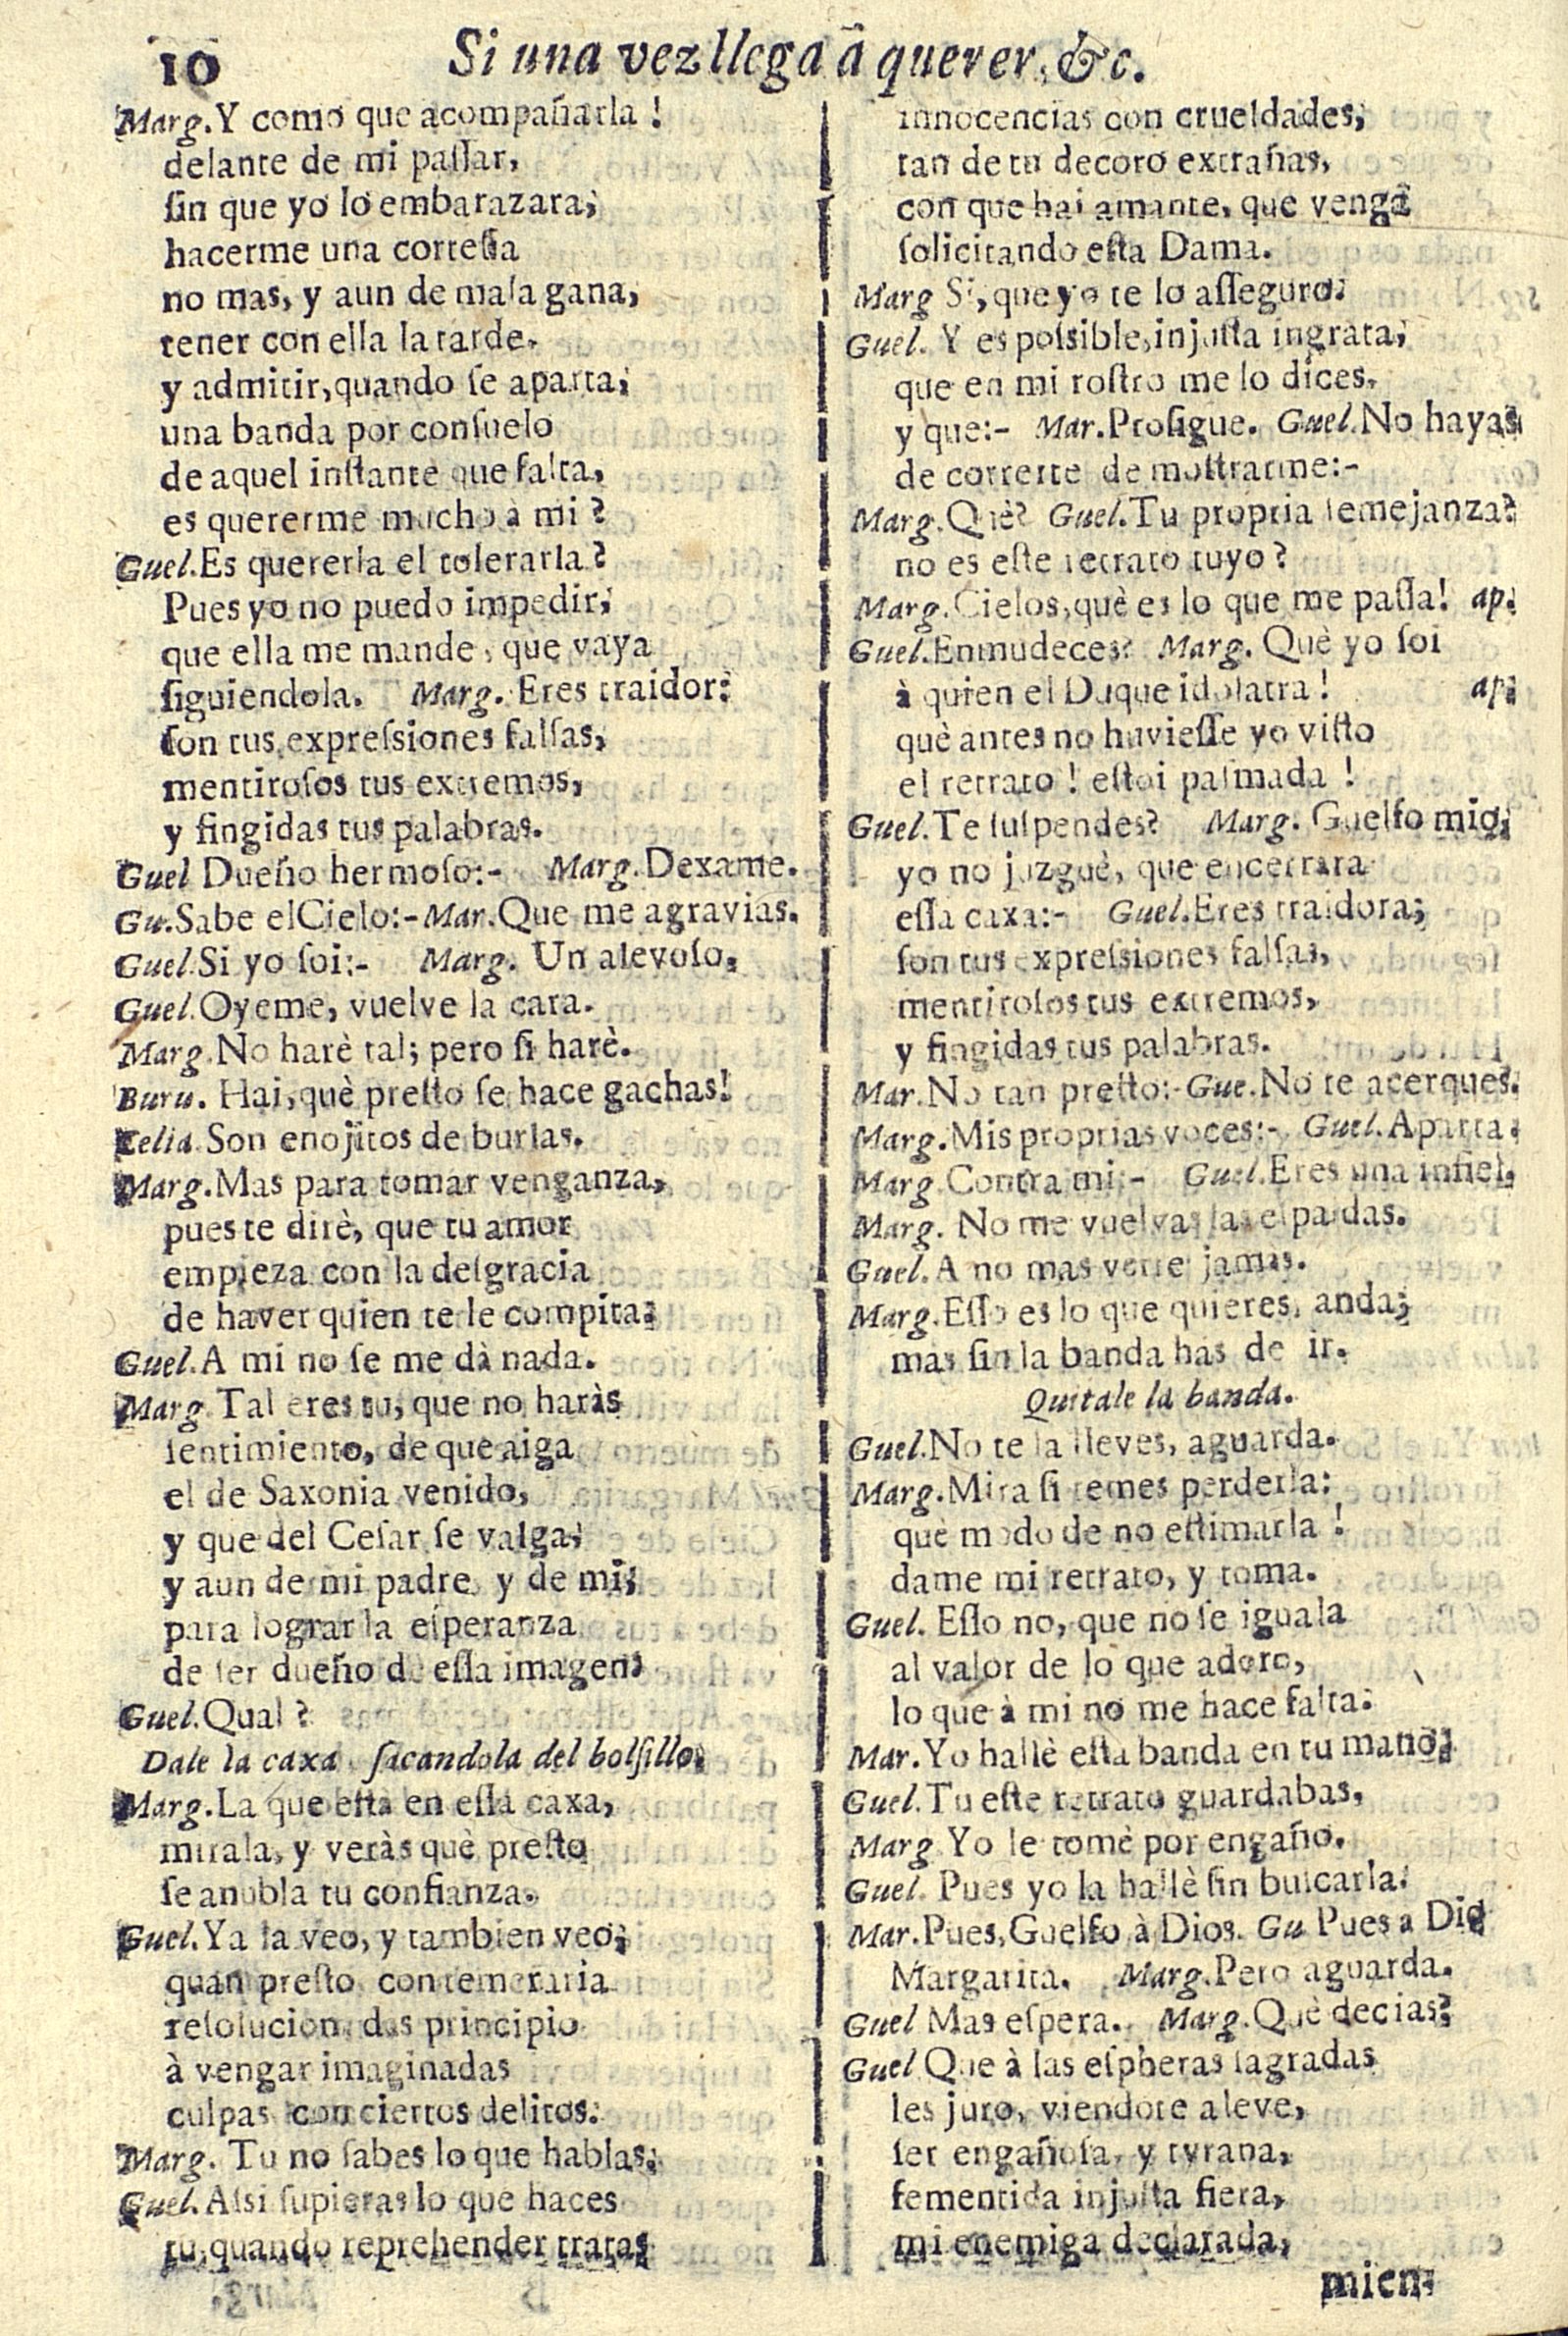 10
Si una vez llega â querer, &c.
Marg. Y como que acompañarla!
delante de mi passar,
sin que yo lo embarazara;
hacerme una cortesia
no mas, y aun de mala gana,
tener con ella la tarde,
y admitir, quando se aparta;
una banda por consuelo
de aquel instante que falta,
es quererme mucho à mi?
Guel. Es quererla el tolerarla?
Pues yo no puedo impedir;
que ella me mande, que vaya
siguiendola. Marg. Eres traidor:
son tus expressiones falsas,
mentirosos tus extremos,
y fingidas tus palabras.
Guel Dueño hermoso:- Marg. Dexame.
Gu. Sabe el Cielo:- Mar. Que me agravias.
Guel. Si yo soi:- Marg. Un alevoso,
Guel. Oyeme, vuelve la cara.
Marg. No harè tal; pero si harè.
Buru. Hai, què presto se hace gachas!
Celia. Son enojitos de burlas.
Marg. Mas para tomar venganza,
pues te dirè, que tu amor
empieza con la desgracia
de haver quien te le compita:
Guel. A mi no se me dà nada.
Marg. Tal eres tu, que no haràs
sentimiento, de que aiga
el de Saxonia venido,
y que del Cesar se valga;
y aun de mi padre, y de mi;
para lograr la esperanza
de ser dueño de essa imagen:
Guel. Qual?
Dale la caxa, sacandola del bolsillo.
Marg. La que està en essa caxa,
mirala, y veràs què presto
se anubla tu confianza.
Guel. Ya la veo, y tambien veo;
quan presto con temeraria
resolucion das principio
à vengar imaginadas
culpas con ciertos delitos.
Marg. Tu no sabes lo que hablas;
Guel. Assi supieras lo que haces
tu, quando reprehender tratas
innocencias con crueldades;
tan de tu decoro extrañas,
con que hai amante, que venga
solicitando esta Dama.
Marg Si, que yo te lo asseguro.
Guel. Y es possible, injusta ingrata;
que en mi rostro me lo dices,
y que:- Mar. Prosigue. Guel. No hayas
de correrte de mostrarme:-
Marg. Què? Guel. Tu propria semejanza?
no es este retrato tuyo?
Marg. Cielos, què es lo que me passa! ap.
Guel. Enmudeces? Marg. Què yo soi
à quien el Duque idolatra! ap.
què antes no huviesse yo visto
el retrato! estoi pasmada!
Guel. Te suspendes? Marg. Guelfo mio;
yo no juzguè, que encerrara
essa caxa:- Guel. Eres traidora;
son tus expressiones falsas,
mentirosos tus extremos,
y fingidas tus palabras.
Mar. No tan presto:- Gue. No te acerques.
Marg. Mis proprias voces:- Guel. Aparta.
Marg. Contra mi:- Guel. Eres una infiel.
Marg. No me vuelvas las espaldas.
Guel. A no mas verte jamas.
Marg. Esso es lo que quieres, anda;
mas sin la banda has de ir.
Quitale la banda.
Guel. No te la lleves, aguarda.
Marg. Mira si temes perderla:
què modo de no estimarla!
dame mi retrato, y toma.
Guel. Esso no, que no se iguala
al valor de lo que adoro,
lo que à mi no me hace falta.
Mar. Yo hallè esta banda en tu mano;
Guel. Tu este retrato guardabas,
Marg Yo le tomè por engaño.
Guel. Pues yo la hallè sin buscarla.
Mar. Pues, Guelfo, à Dios. Gu Pues a Dio
Margarita. Marg. Pero aguarda.
Guel Mas espera. Marg. Què decias?
Guel Que à las espheras sagradas
les juro, viendote aleve,
ser engañosa, y tyrana,
fementida injusta fiera,
mi enemiga declarada,
mien-